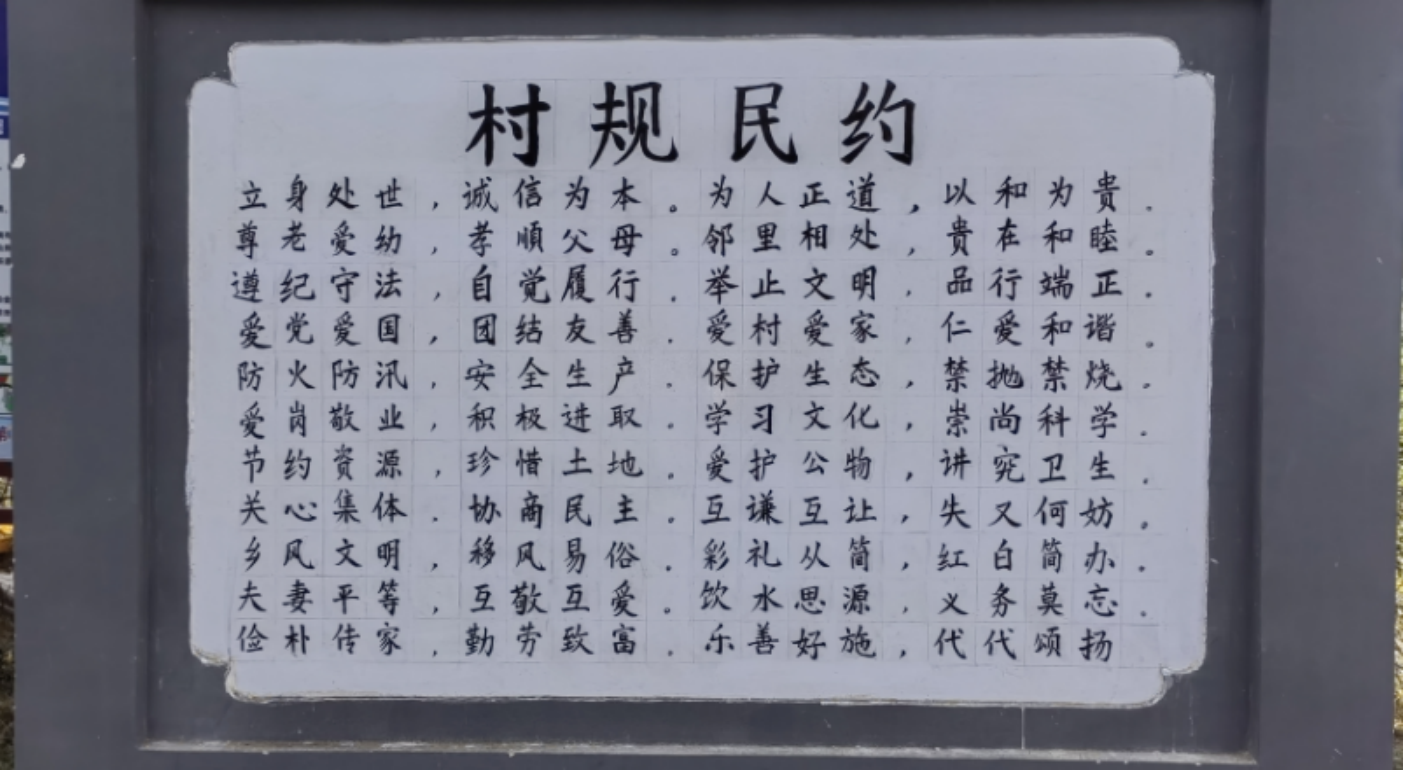 村规民约
立身处世，诚信为本。为人正道，以和为贵.
尊老爱幼，孝順父母。邻里相处，贵在和睦。
遵纪守法，自觉履行.举止文明，品行端正.
爱党爱国，团结友善.爱村爱家，仁爱和谐。
防火防汛，安全生产.保护生态，禁抛禁烧.
爱岗敬业，积极进取.学习文化，崇尚科学.
节约资源，珍惜土地.爱护公物，讲究卫生.
关心集体.协商民主.互谦互让，失又何妨.
乡风文明，移风易俗.彩礼从简，红白简办.
夫妻平等，互敬互爱.饮水思源，义务莫忘.
俭朴传家，勤劳致富.乐善好施，代代颂扬